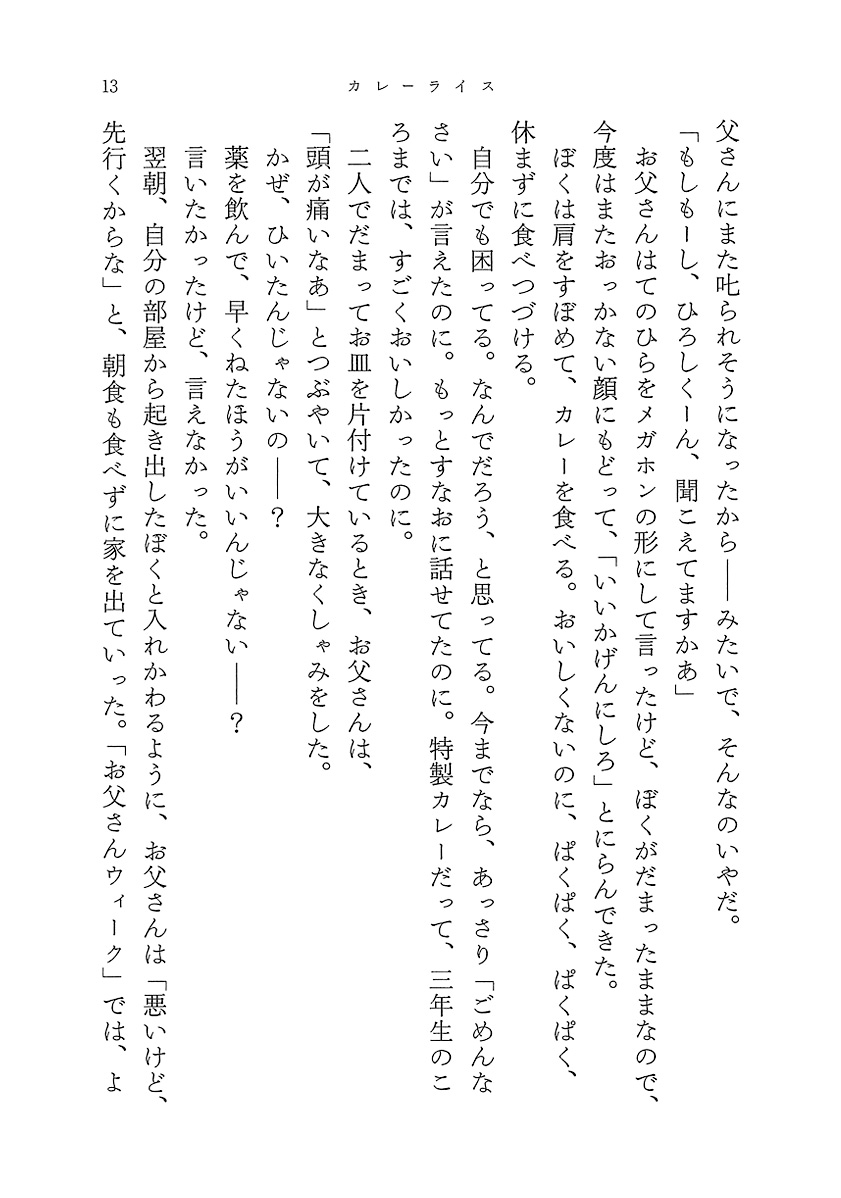 13
カレーライス
父さんにまた叱られそうになったから――みたいで、そんなのいやだ。
「もしもーし、ひろしくーん、聞こえてますかあ」
お父さんはてのひらをメガホンの形にして言ったけど、ぼくがだまったままなので、
今度はまたおっかない顔にもどって、「いいかげんにしろ」とにらんできた。
ぼくは肩をすぼめて、カレーを食べる。おいしくないのに、ぱくぱく、ぱくぱく、
休まずに食べつづける。
自分でも困ってる。なんでだろう、と思ってる。今までなら、あっさり「ごめんな
さい」が言えたのに。もっとすなおに話せてたのに。特製カレーだって、三年生のこ
ろまでは、すごくおいしかったのに。
二人でだまってお皿を片付けているとき、お父さんは、
「頭が痛いなあ」とつぶやいて、大きなくしゃみをした。
かぜ、ひいたんじゃないの――？
薬を飲んで、早くねたほうがいいんじゃない――？
言いたかったけど、言えなかった。
翌朝、自分の部屋から起き出したぼくと入れかわるように、お父さんは「悪いけど、
先行くからな」と、朝食も食べずに家を出ていった。「お父さんウィーク」では、よ